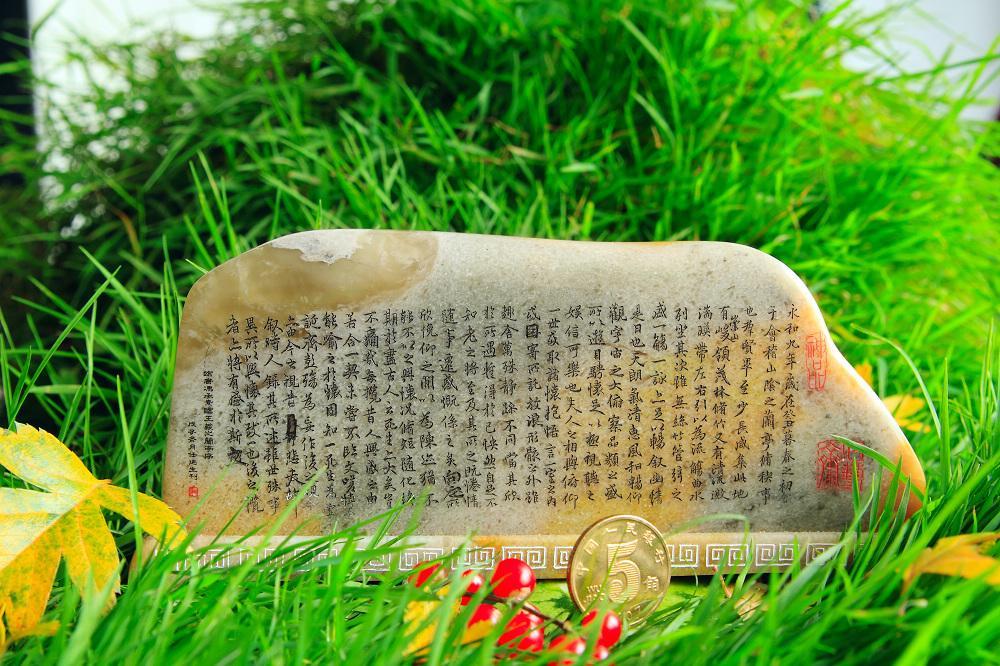 永和九年歲在癸丑暮春之初會
于會稽山陰之蘭亭脩禊事
也群賢畢至少長咸集此地
有崇山峻領茂林脩竹又有清流激
湍暎帶左右引以為流觴曲水
列坐其次雖無絲竹管弦之
盛一觴一詠亦足以暢敘幽情
是日也天朗氣清惠風和暢仰
觀宇宙之大俯察品類之盛
所以遊目騁懷足以極視聽之
娛信可樂也夫人之相與俯仰
一世或取諸懷抱悟言一室之內
或因寄所託放浪形骸之外雖
趣舍萬殊靜躁不同當其欣
於所遇蹔得於己怏然自足不
知老之將至及其所之既惓情
隨事遷感慨係之矣向之所
欣俛仰之間以為陳迹猶不
能不以之興懷況脩短隨化終
期於盡古人云死生亦大矣豈
不痛哉每攬昔人興感之由
若合一契未嘗不臨文嗟悼不
能喻之於懷固知一死生為虛
誕齊彭殤為妄作後之視今
亦由今之視昔悲夫故列
敘時人錄其所述雖世殊事
異所以興懷其致一也後之攬
者亦將有感於斯文
5角